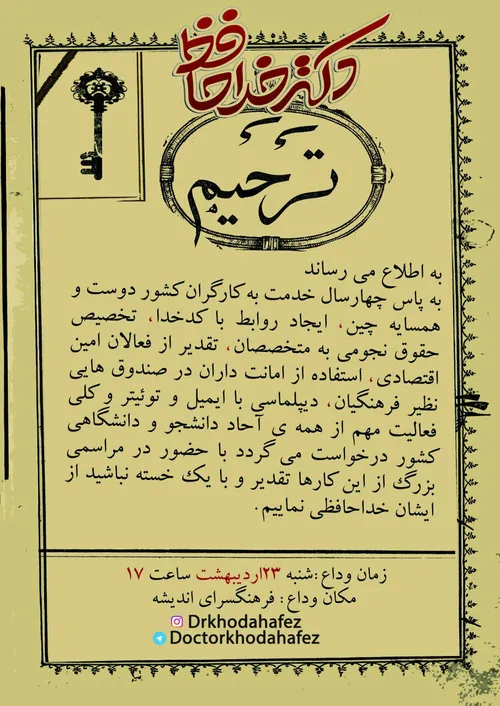 دکتر خداحافظ
ترحیم
به اطلاع می رساند
به پاس چهارسال خدمت به کارگران کشور دوست و
همسایه چین، ایجاد روابط با کدخدا، تخصیص
حقوق نجومی به متخصصان، تقدیر از فعالان امین
اقتصادی، استفاده از امانت داران در صندوق هایی
نظیر فرهنگیان، دیپلماسی با ایمیل و توئیتر و کلی
فعالیت مهم از همه ی آحاد دانشجو و دانشگاهی
کشور درخواست می گردد با حضور در مراسمی
بزرگ از این کارها تقدیر و با یک خسته نباشید از
ایشان خداحافظی نماییم.
زمان وداع :شنبه ۲۳اردیبهشت ساعت ۱۷
مکان وداع : فرهنگسرای اندیشه
Drkhodahafez
Doctorkhodahafez